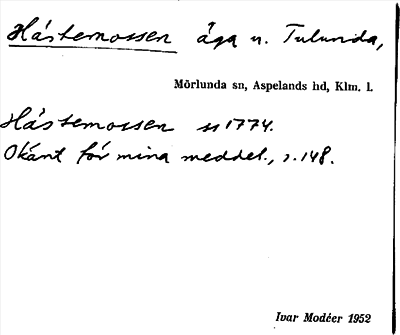 Hästemossen äga n. Tulunda,
Mörlunda sn, Aspelands hd, Klm. l.
Hästemossen 1774.
Okänt för mina meddel., s. 148.
Ivar Modéer 1952